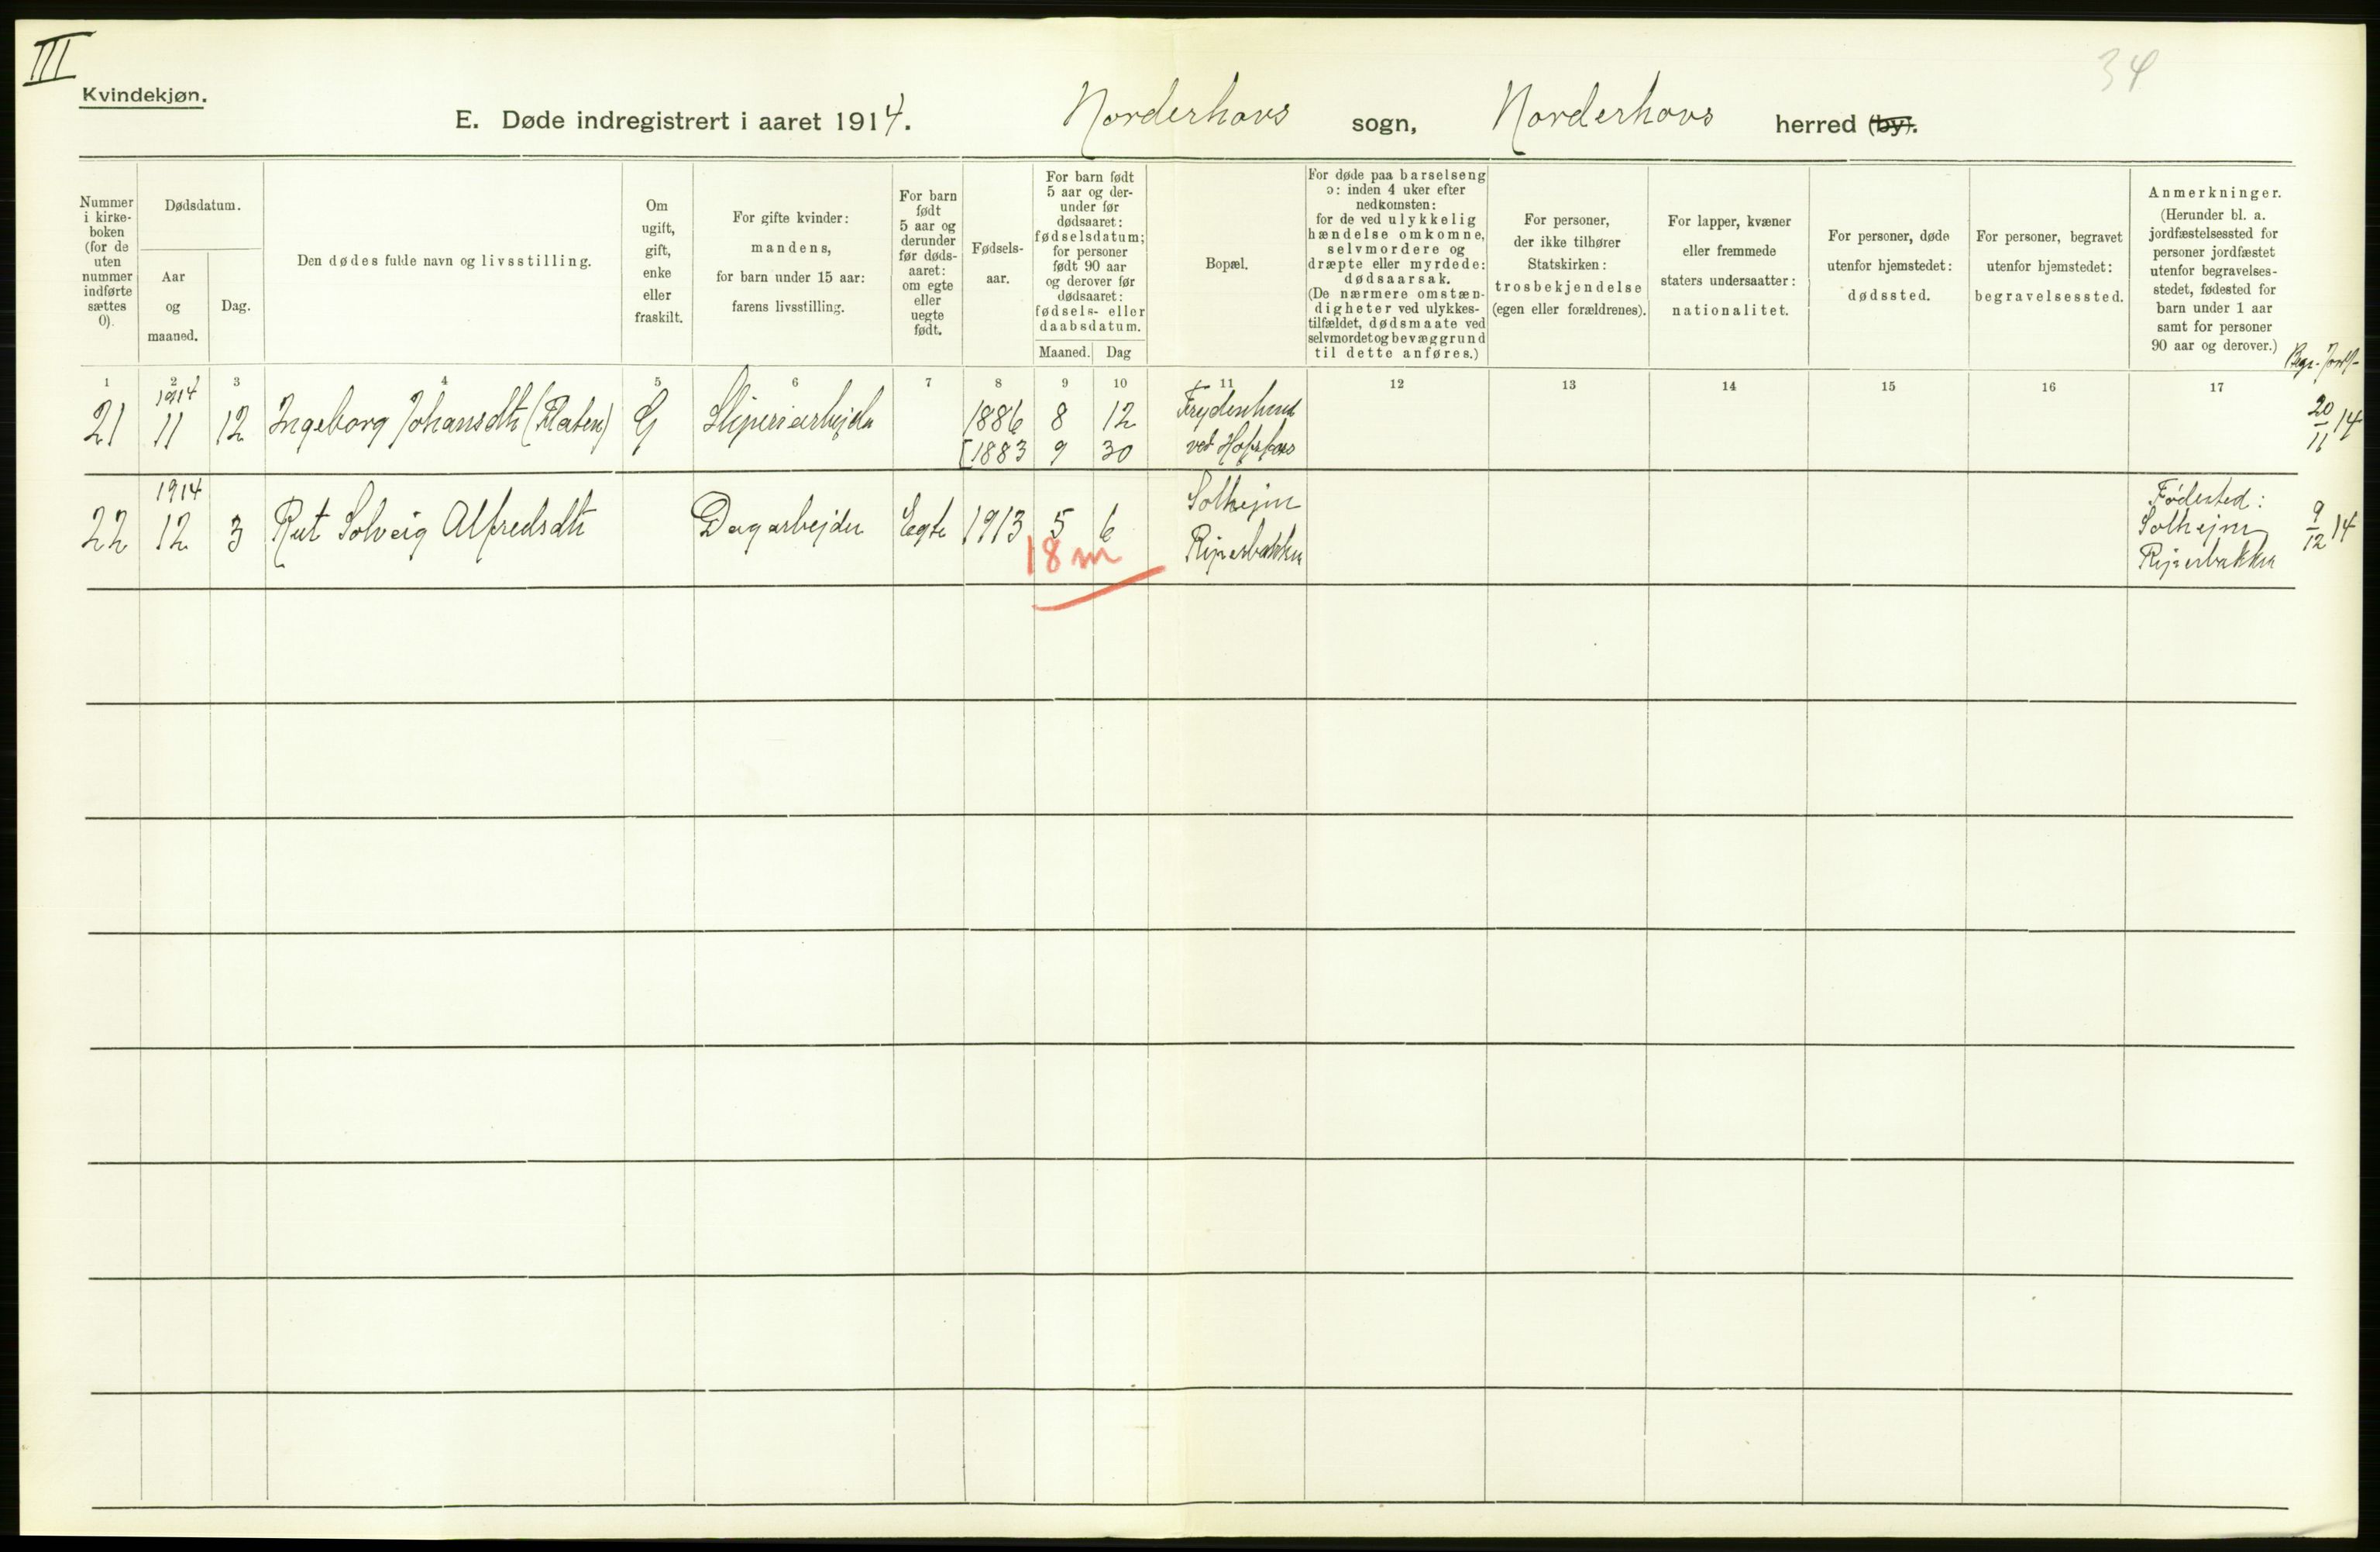 III
34
Kvindekjøn.
E. Døde indregistrert i aaret 1914. Norderhovs sogn, Norderhovs herred (by).
Nummer i kirke-boken (for de uten nummer indførte sættes 0).
Dødsdatum.
Aar og maaned.
Dag.
Den dødes fulde navn og livsstilling.
Om ugift, gift, enke eller fraskilt.
For gifte kvinder: mandens, for barn under 15 aar: farens livsstilling.
For barn født 5 aar og derunder før døds-aaret: om egte eller uegte født.
Fødsels-aar.
For barn født 5 aar og der-under før dødsaaret: fødselsdatum; for personer født 90 aar og derover før dødsaaret: fødsels- eller daabsdatum.
Maaned. Dag
Bopæl.
For døde paa barselseng ɔ: inden 4 uker efter nedkomsten: for de ved ulykkelig hændelse omkomne, selvmordere og dræpte eller myrdede: dødsaarsak. (De nærmere omstæn-digheter ved ulykkes-tilfældet, dødsmaate ved selvmordet og bevæggrund til dette anføres.)
For personer, der ikke tilhører Statskirken: trosbekjendelse (egen eller forældrenes).
For lapper, kvæner eller fremmede staters undersaatter: nationalitet.
For personer, døde utenfor hjemstedet: dødssted.
For personer, begravet utenfor hjemstedet: begravelsessted.
Anmerkninger. (Herunder bl. a. jordfæstelsessted for personer jordfæstet utenfor begravelses-stedet, fødested for barn under 1 aar samt for personer 90 aar og derover.)
1 2 3 4 5 6 7 8 9 10 11 12 13 14 15 16 17
21 1914 11 12 Ingeborg Johansdtr G Sliperiarbejder 1886 8 12 Frydenlund 20/11 14
[1883 9 30 ved Hofsfoss
22 1914 12 3 Rut Solveig Alfredsdtr Dagarbejder Egte 1913 5 6 Solhejm Fødested: 9/12 14
Solhejm
18 m